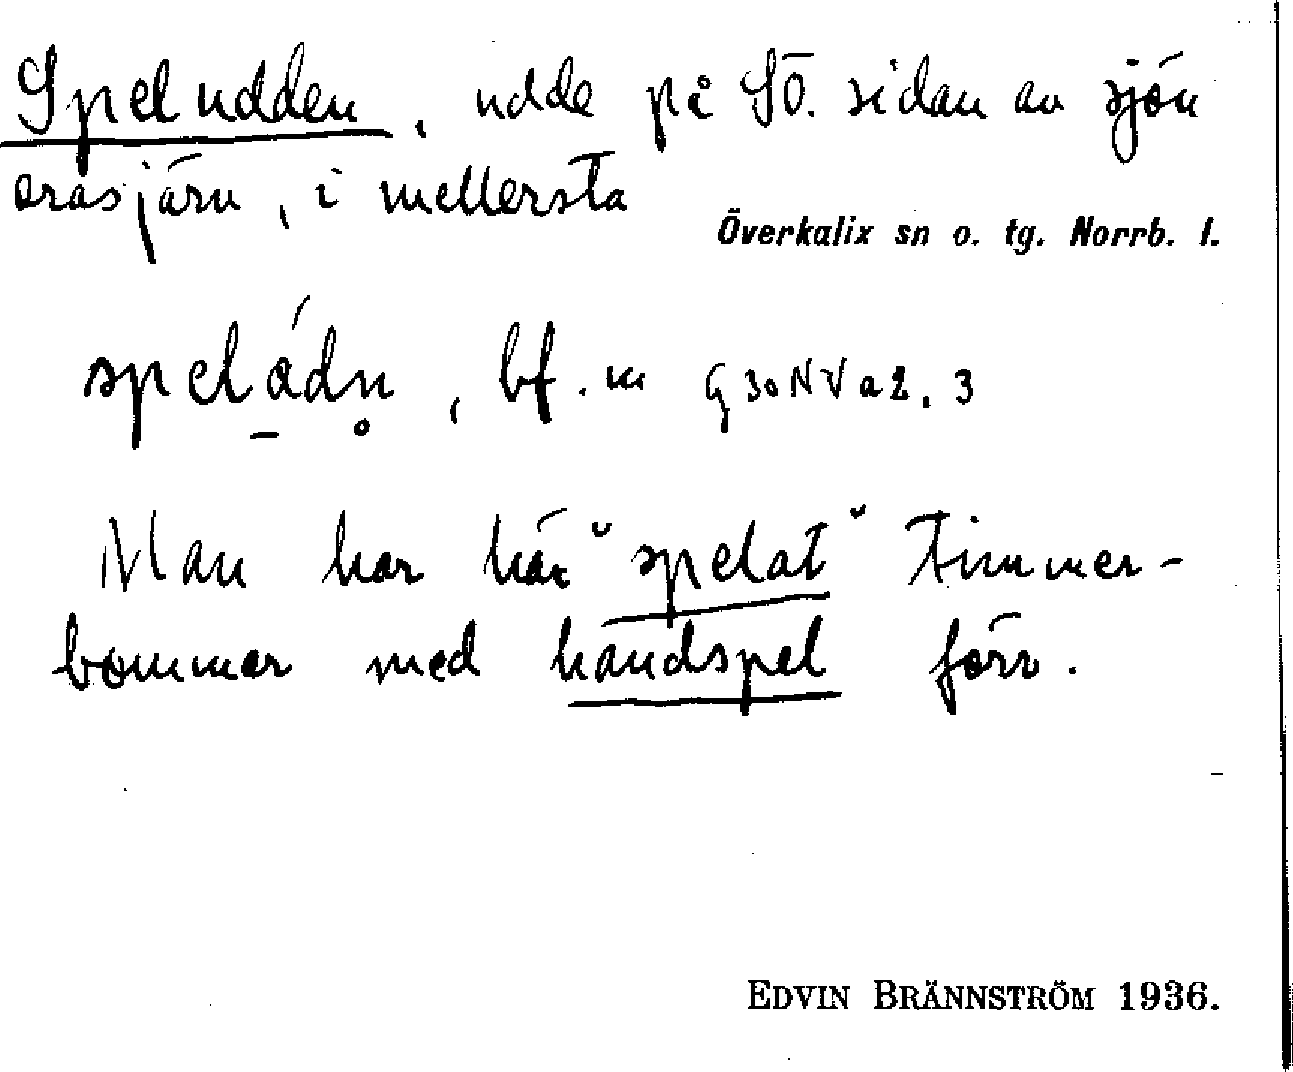 Speludden, udde på SÖ. sidan av sjön
oråsjärv, i mellersta
Överkalix sn o. tg. Norrb. l.
bf. m G 30 NV a 2. 3
Man har här "spelat" timmer-
bommar med handspel förr.
EDVIN BRÄNNSTRÖM 1936.